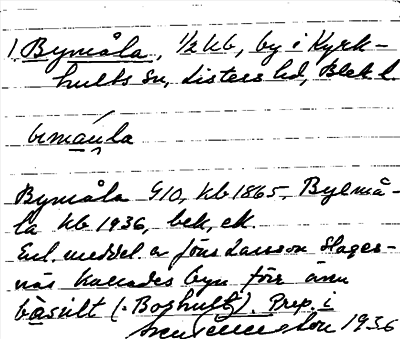 1. Bymåla, 1/2 kb, by i Kyrk-
hults sn, Listers hd, Blek l.
Bymåla G10, kb 1865, Byemå-
la kb 1936, bek, ek.
Enl. meddel. av Jöns Larsson Slages-
näs kallades byn förr även
båsult (: Boghult). Prep. i
1936